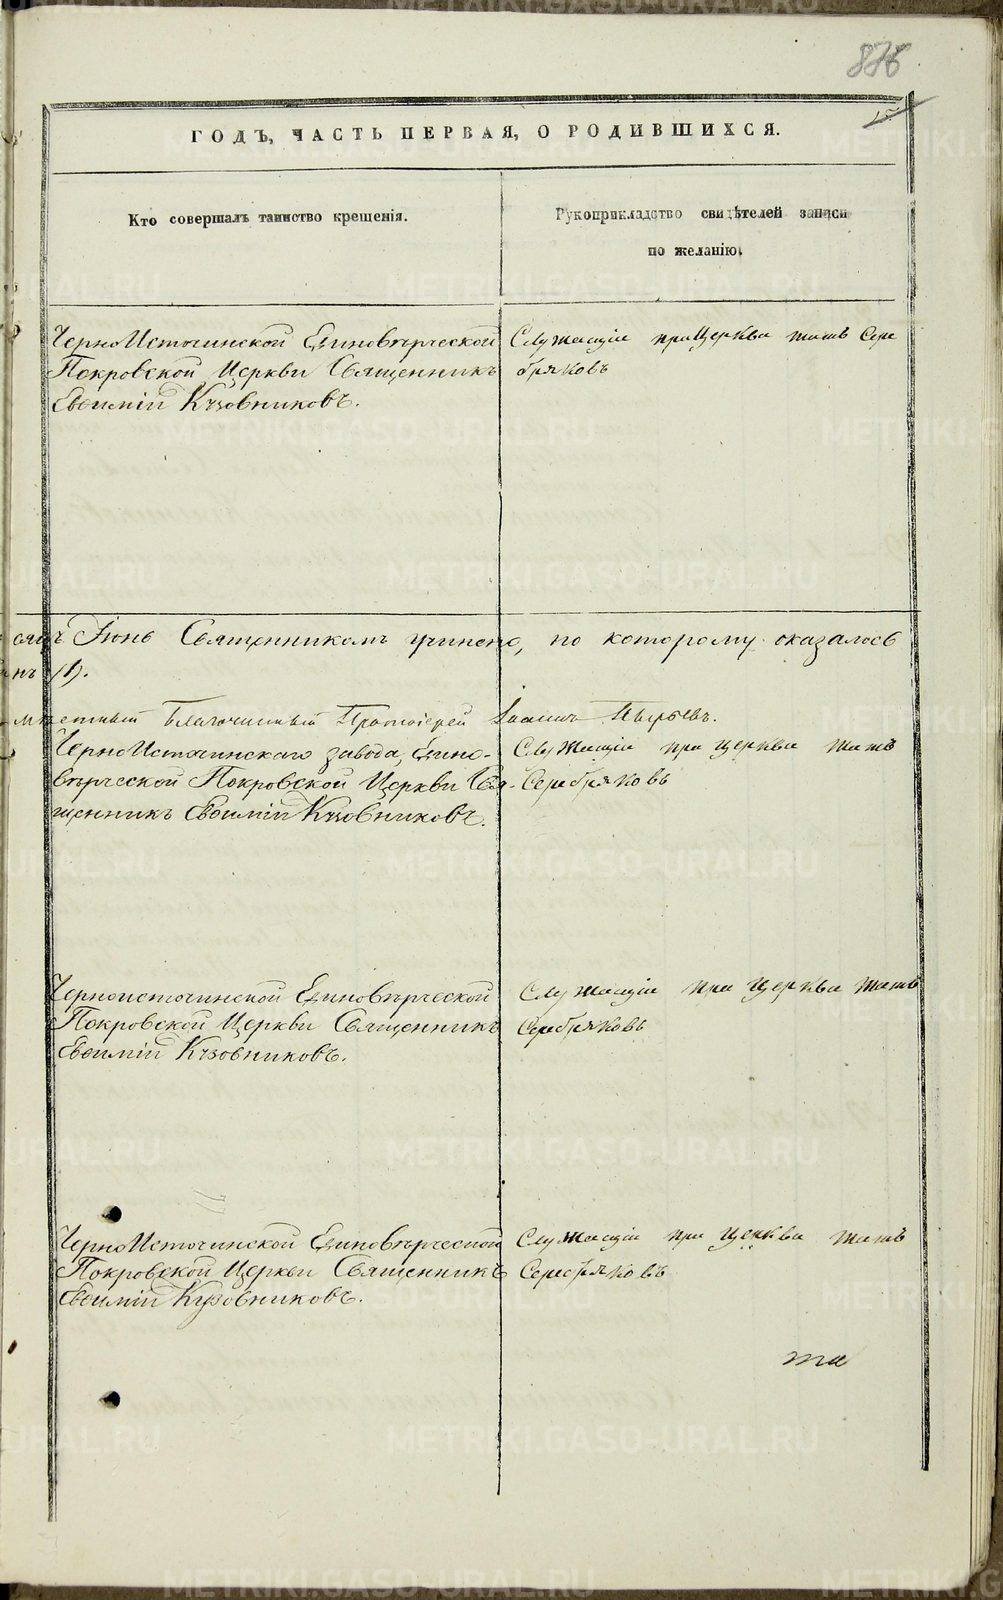 876
ГОДЪ, ЧАСТЬ ПЕРВАЯ, О РОДИВШИХСЯ.
Кто совершалъ таинство крещенія.
Рукоприкладство свидѣтелей записи
по желанію.
ЧерноИсточинской Единовѣрческой
Покровской Церкви Священникъ
Евѳимій Кузовниковъ.
Служащіи при Церкви
Серебряковъ
Іюнь Священникомъ учинено, по которому оказалось
Благочинный Протоіерей Іоаннъ Пырьевъ.
ЧерноИсточинскаго завода, Едино-
вѣрческой Покровской Церкви Свя-
щенникъ Евѳимій Кузовниковъ.
Служащіи при церкви
Серебряковъ
Черноисточинской Единовѣрческой
Покровской Церкви Священникъ
Евѳимій Кузовниковъ.
Служащіи при Церкви
Серебряковъ
ЧерноИсточинской Единовѣрческой
Покровской Церкви Священникъ
Евѳимій Кузовниковъ.
Служащіи при Церкви
Серебряковъ
METRIKI.GASO-URAL.RU